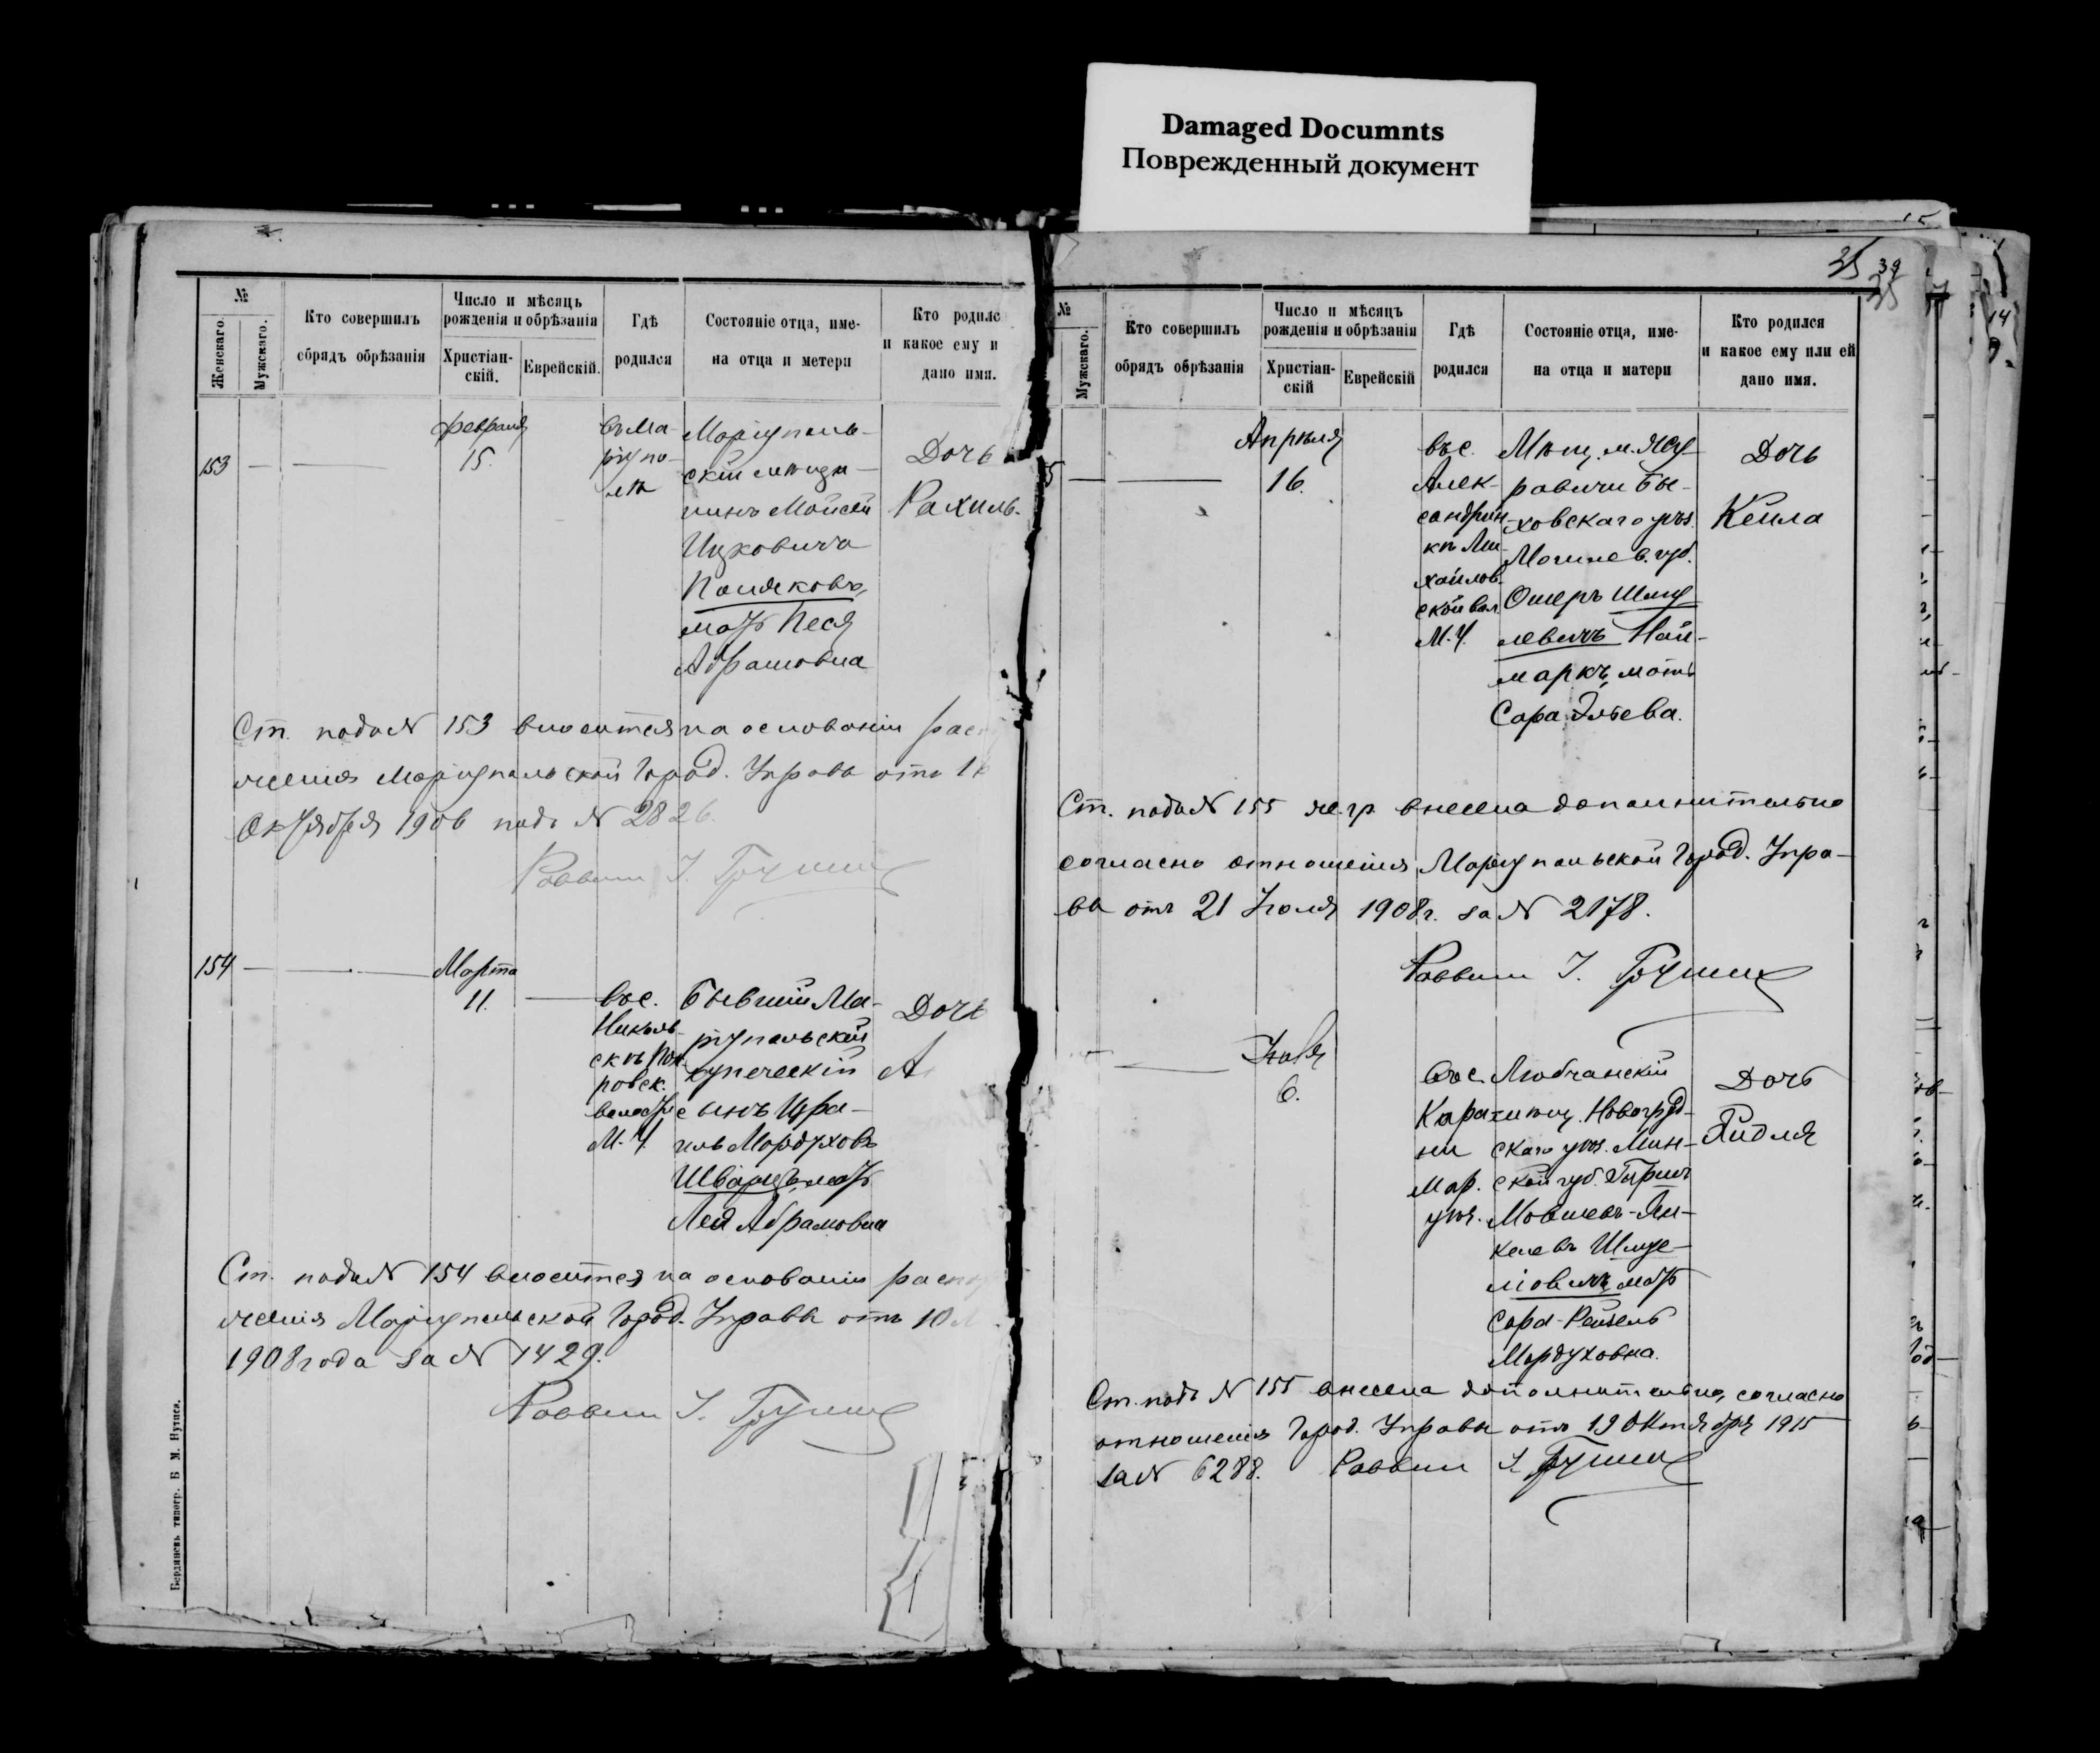 Damaged Documnts
Поврежденный документ
№
Женскаго.
Мужскаго.
Кто совершилъ
обрядъ обрѣзанія
Число и мѣсяцъ
рожденія и обрѣзанія
Христіан-
скій.
Еврейскій.
Гдѣ
родился
Состояніе отца, име-
на отца и метери
Кто родилс
и какое ему и
дано имя.
153
февраля
15.
въ Ма-
ріупо-
лѣ
Маріуполь-
скій мѣща-
нинъ Мойсей
Ицковичъ
Поляковъ,
мать Песя
Абрамовна
Дочь
Рахиль.
Ст. подъ № 153 вносится на основаніи рас
женія Маріупольской Город. Управы отъ 1
Октября 1906 подъ № 2826.
Раввинъ
154
Марта
11.
въ с.
Николь-
скѣ Пок-
ровск.
волости
М. У.
Бывшій Ма-
ріупольскій
купеческій
сынъ Изра-
иль Мордуховъ
Шварцъ, мать
Лея Абрамовна
Дочь
А
Ст. подъ № 154 вносится на основаніи расп
женія Маріупольской Город. Управы отъ 10
1908 года за № 1429.
Раввинъ
Бердянскъ типогр. Б М. Нутиса.
25
39
25
№
Мужскаго.
Кто совершилъ
обрядъ обрѣзанія
Число и мѣсяцъ
рожденія и обрѣзанія
Христіан-
скій
Еврейскій
Гдѣ
родился
Состояніе отца, име-
на отца и матери
Кто родился
и какое ему или ей
дано имя.
5
Апрѣля
16.
въ с.
Алек-
сандрин-
кѣ Ми-
хайлов-
ской вол.
М. У.
Мѣщ. м.
Бы-
ховскаго уѣз.
Могилев. губ.
Ошеръ Шму
левичъ Най-
маркъ, мать
Сара Эльева.
Дочь
Кейла
Ст. подъ № 155 же.гр. внесена дополнительно
согласно отношенія Маріупольской Город. Упра-
вы отъ 21 Іюля 1908 г. за № 2178.
Раввинъ
Іюля
6.
въ с.
Кара
ни
Мар.
уѣз.
Любчанскій
мѣщ. Новогруд-
скаго уѣз. Мин-
ской губ. Гиршъ
Мовшевъ-Ян-
келевъ Шмуе-
мать
Сара-Рейзель
Мордуховна.
Дочь
Ст. подъ № 155 внесена дополнительно, согласно
отношенія Город. Управы отъ 19 Октября 1915
за № 6288. Раввинъ